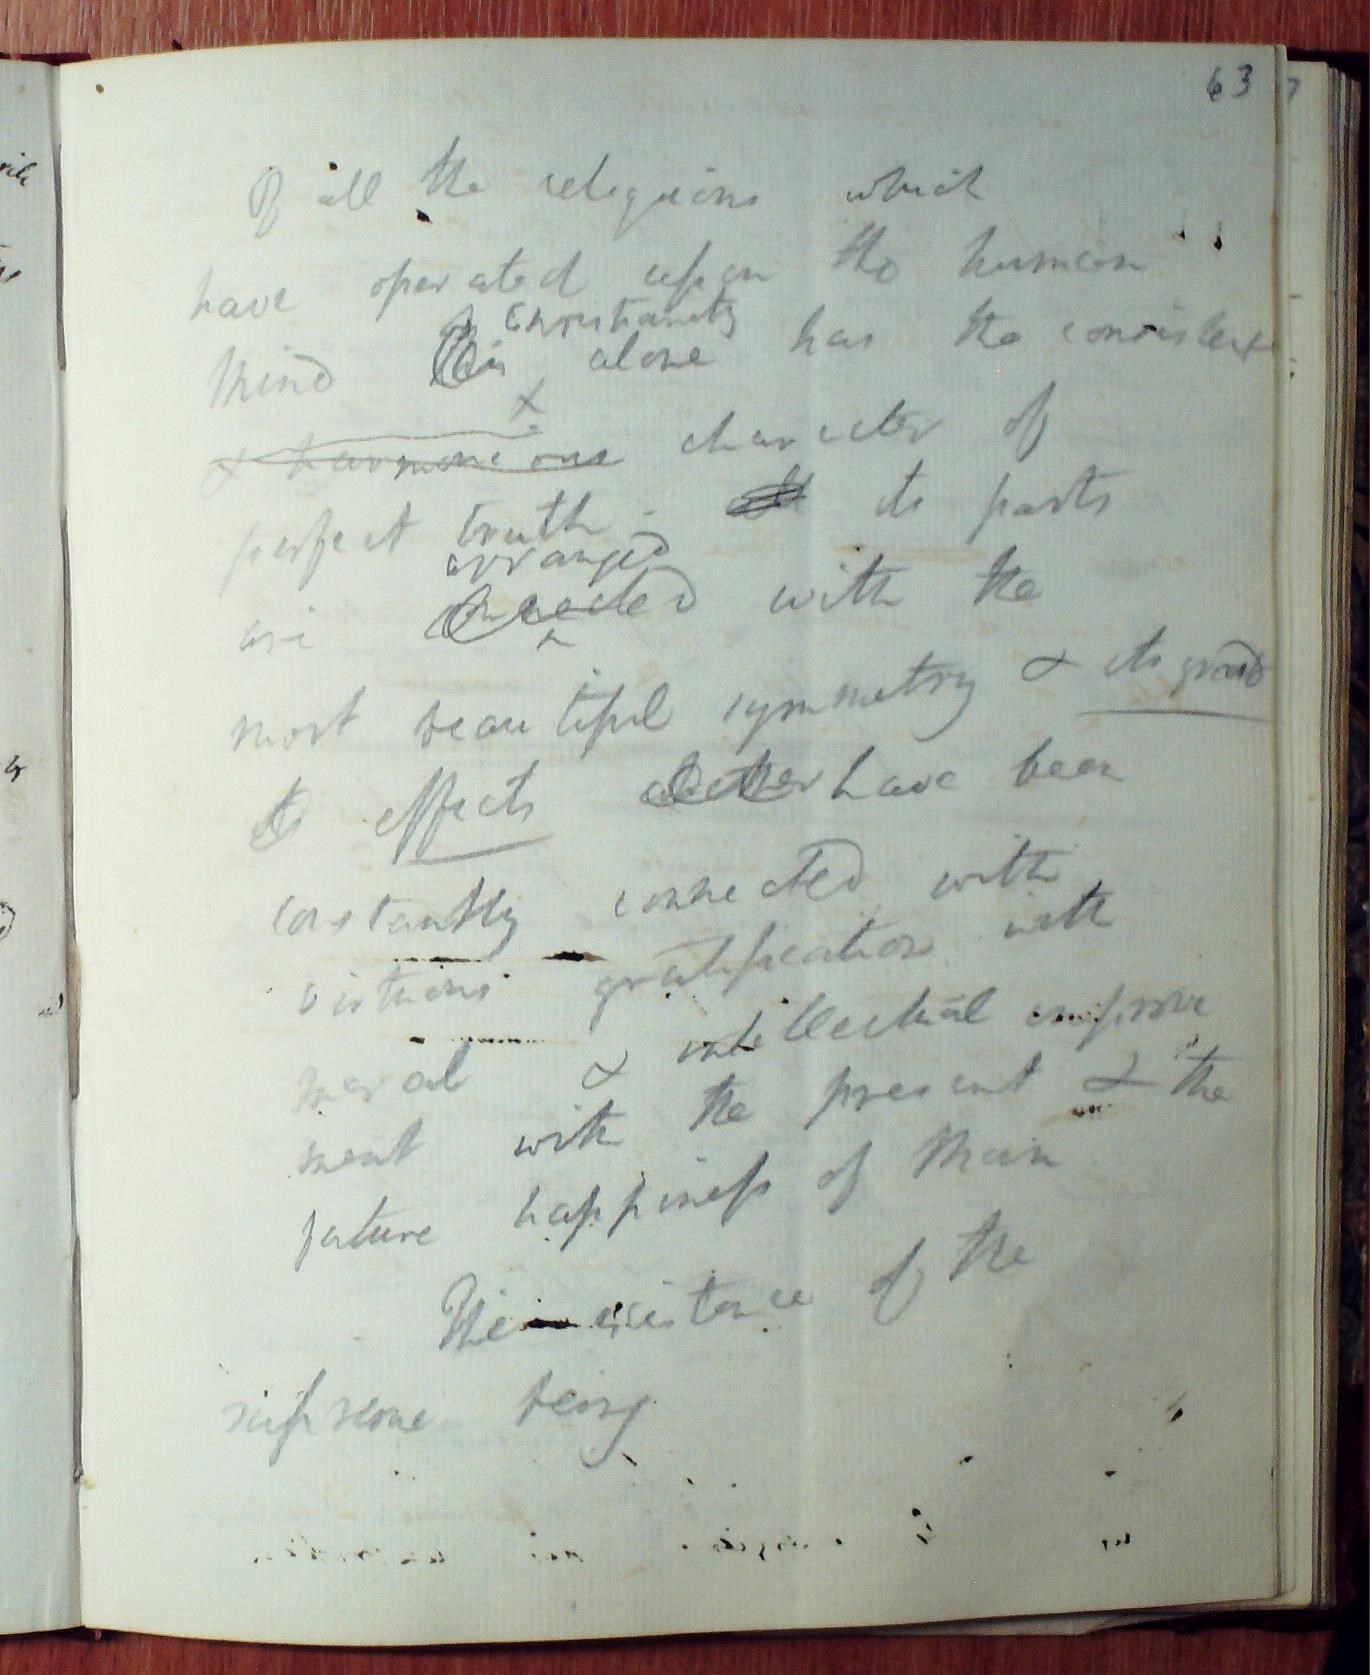 63
Of all the religions which
have operated upon the human
Christianity
mind this alone has the consistent
& harmonious character of
perfect truth - its parts
arranged
are connected with the
most beautiful symmetry & its grand
effects have been
constantly connected with
virtuous gratification with
moral & intellectual improve
ment with the present & the
future happiness of Man
The existence of the
supreme being